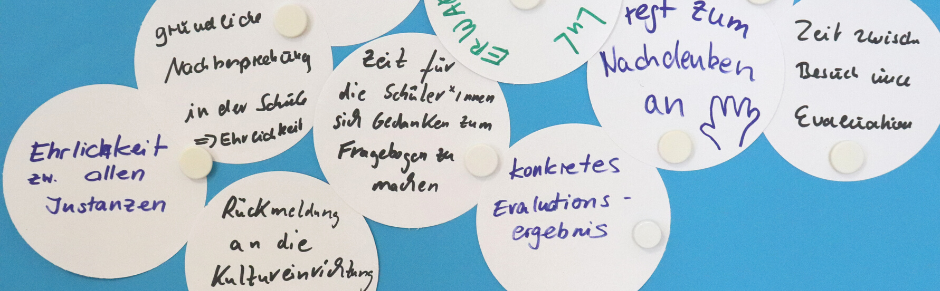 gründliche
Nachbesprechung
in der Schule
=> Ehrlichkeit
Ehrlichkeit
zw. allen
Instanzen
Rückmeldung
an die
Kultureinrichtung
Zeit für
die Schüler*innen
sich Gedanken zum
Fragebogen zu
machen
ERWAR
LuL
konkretes
Evalutions-
ergebnis
regt zum
Nachdenken
an
Zeit zwisch
Besuch
Evaluation